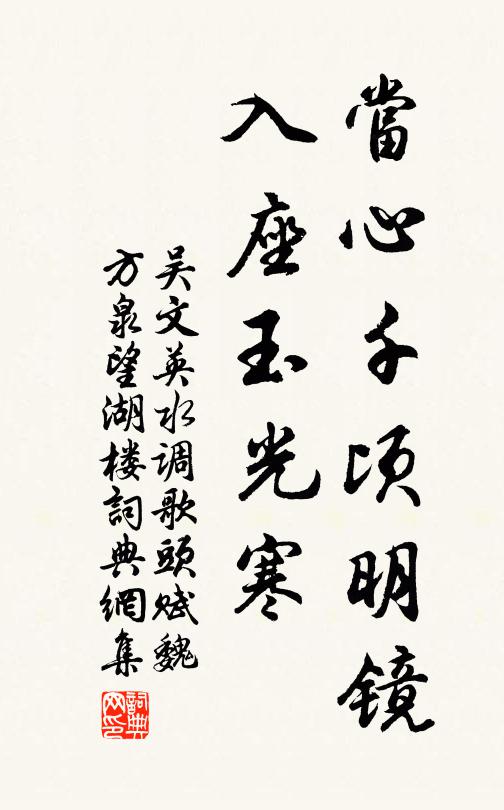 當心千頃明鏡
入座玉光寒
吴文英水调歌頭赋魏
方泉望湖楼詞典網集
詞典
网印